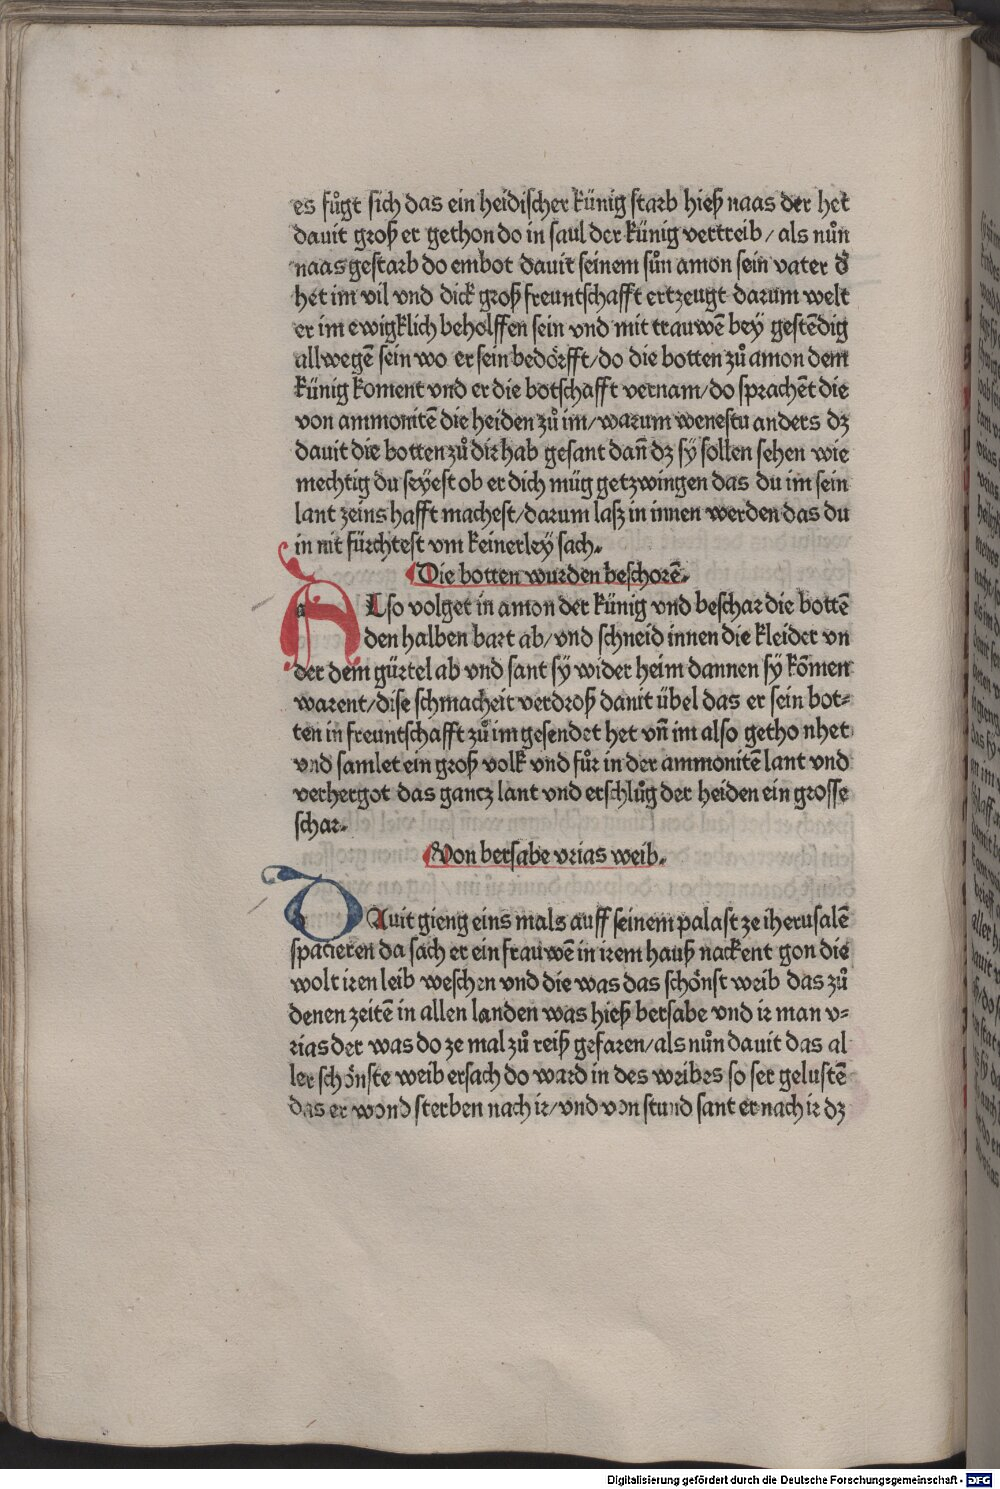 es fůgt sich das ein heidischer künig starb hieß naas der het
dauit groß er gethon do in saul der künig vertreib / als nůn
naas gestarb do embot dauit seinem sůn amon sein vater d̕
het im vil vnd dick groß freuntschafft ertzeugt darum welt
er im ewigklich beholffen sein vnd mit trauwē beÿ gestēdig
allwegē sein wo er sein bedörfft/do die botten zů amon dem
künig koment vnd er die botschafft vernam/do sprachēt die
von ammonitē die heiden zů im/warum wenestu anders dz
dauit die botten zů dir hab gesant dañ dz sÿ sollen sehen wie
mechtig du seÿest ob er dich müg getzwingen das du im sein
lant zeinshafft machest/darum lasz in innen werden das du
in nit fürchtest vm keinerleÿ sach.
Die botten wurden beschorē.
ALso volget in amon der künig vnd beschar die bottē
den halben bart ab/vnd schneid innen die kleider vn
der dem gürtel ab vnd sant sÿ wider heim dannen sÿ kōmen
warent/dise schmacheit verdroß dauit übel das er sein bot-
ten in freuntschafft zů im gesendet het vñ im also getho nhet
vnd samlet ein groß volk vnd fůr in der ammonitē lant vnd
verhergot das gancz lant vnd erschlůg der heiden ein grosse
schar.
Von bersabe vrias weib.
DAuit gieng eins mals auff seinem palast ze iherusalē
spacieren da sach er ein frauwē in irem hauß nackent gon die
wolt iren leib weschen vnd die was das schönst weib das zů
denen zeitē in allen landen was hieß bersabe vnd ir man v-
rias der was do ze mal zů reiß gefaren/als nůn dauit das al
ler schönste weib ersach do ward in des weibes so ser gelustē
das er wond sterben nach ir/vnd von stund sant er nach ir dz
Digitalisierung gefördert durch die Deutsche Forschungsgemeinschaft - DFG